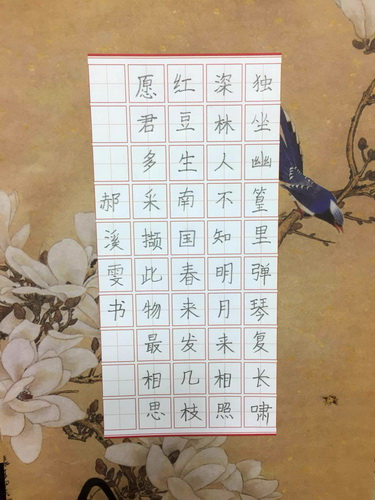 独坐幽篁里弹琴复长啸
深林人不知明月来相照
红豆生南国春来发几枝
愿君多采撷此物最相思
郝溪雯书